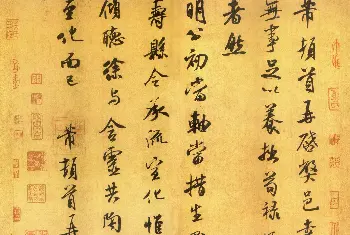 芾頓首再啓弊邑幸
無事足以養拙苟祿
者然
明公初當軸當措生
壽縣令承流宣化惟
傾聽徐與含靈共陶
至化而已 芾頓首再